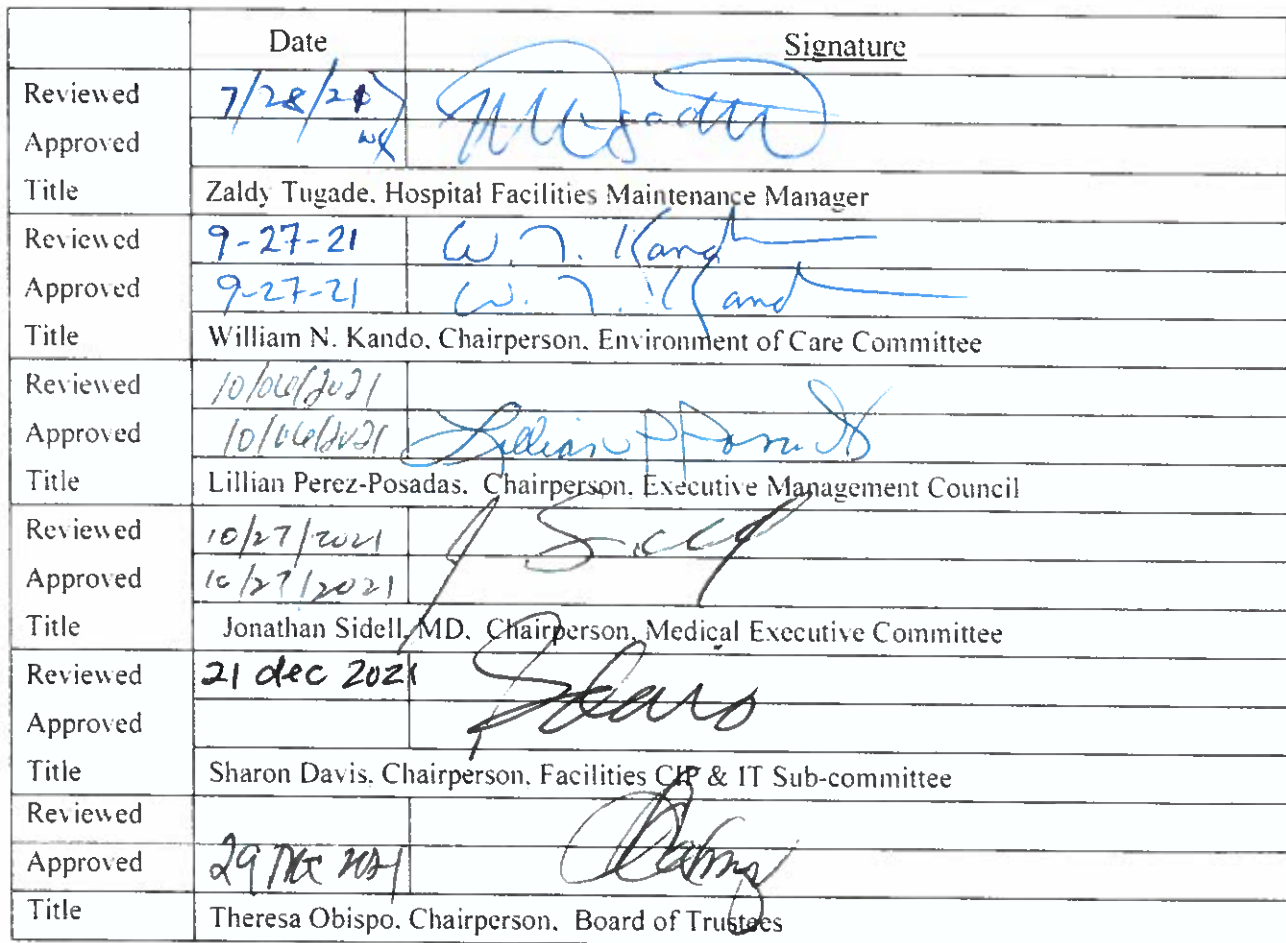 Date Signature
Reviewed 7/28/21
Approved
Title Zaldy Tugade. Hospital Facilities Maintenance Manager
Reviewed 9-27-21 W. N. Kando
Approved 9-27-21 W. N. Kando
Title William N. Kando. Chairperson. Environment of Care Committee
Reviewed 10/06/2021
Approved 10/06/2021
Title Lillian Perez-Posadas. Chairperson. Executive Management Council
Reviewed 10/27/2021
Approved 10/27/2021
Title Jonathan Sidell, MD. Chairperson, Medical Executive Committee
Reviewed 21 dec 2021
Approved
Title Sharon Davis. Chairperson. Facilities CIP & IT Sub-committee
Reviewed
Approved 29 Dec 2021
Title Theresa Obispo. Chairperson. Board of Trustees